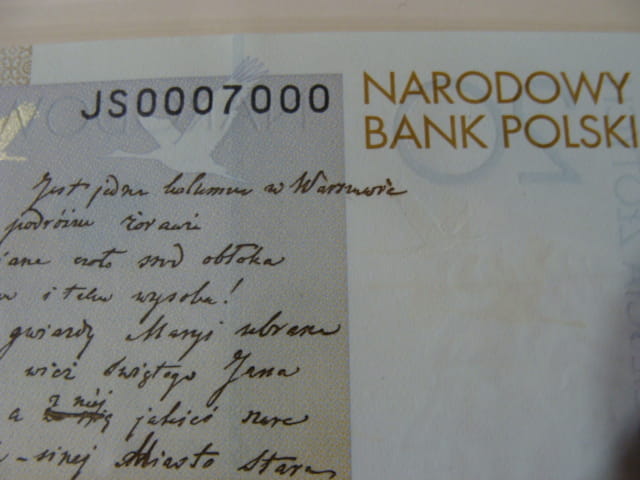 JS0007000
NARODOWY
BANK POLSKI
Jest jedna kolumna w Warszawie
podróżne żórawi
czoło śród obłoka
i taka wysoka!
gwiazdy Maryi ubrana
wież świętego Jana
a z niéj jakieś stare
-sinej Miasto Stare